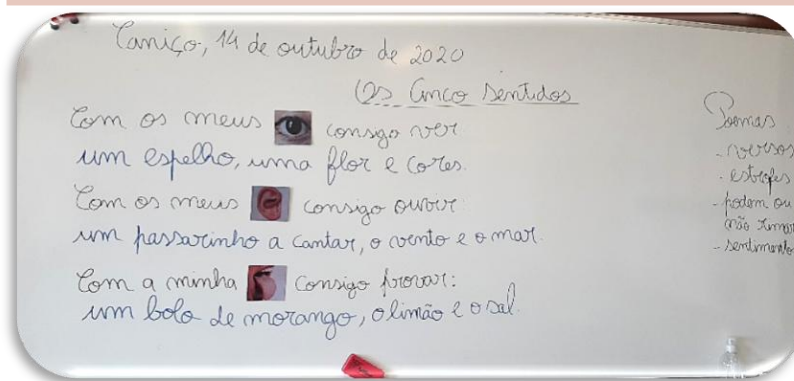 Caniço, 14 de outubro de 2020
Os Cinco Sentidos
Com os meus consigo ver
um espelho, uma flor e cores.
Com os meus consigo ouvir:
um passarinho a cantar, o vento e o mar.
Com a minha consigo provar:
um bolo de morango, o limão e o sal.
Poemas
- versos
- estrofes
- podem ou
não rimar
- sentimento